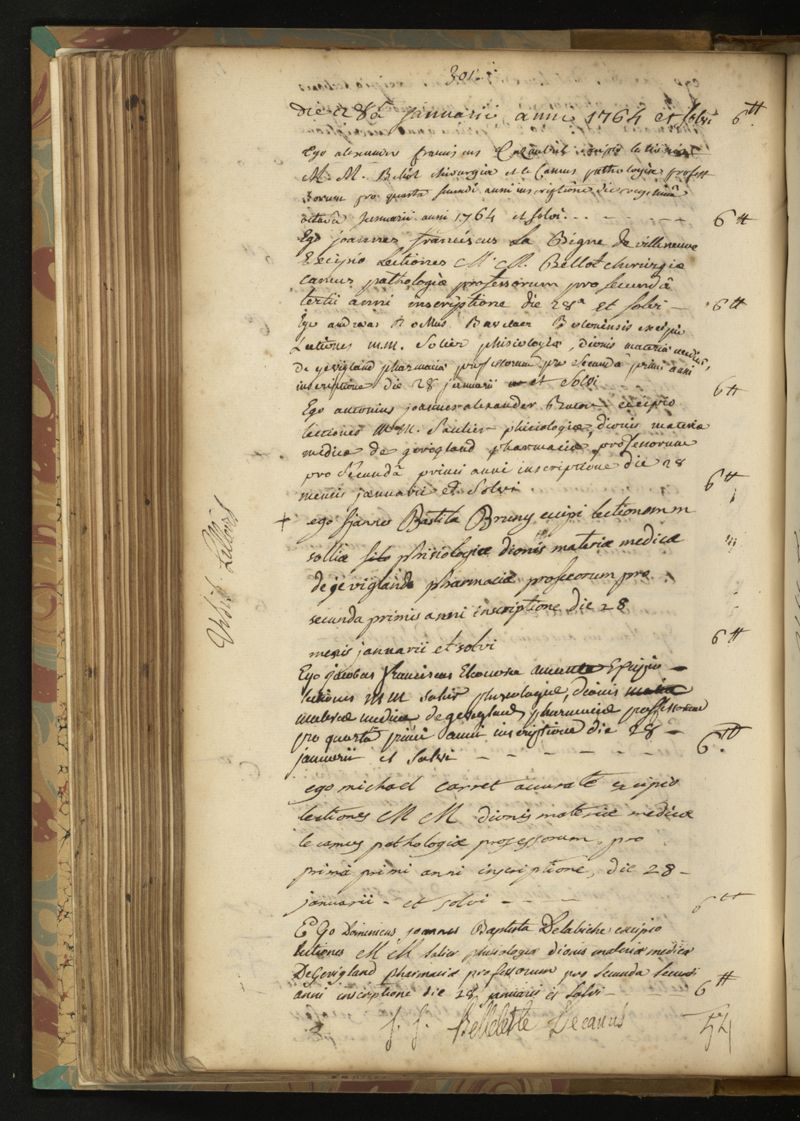 301
die 28a Januarii anni 1764 et solvi 6tt
Ego alexander franciscus excipio lectiones
M. M. Bellot chirurgiæ et le Camus pathologiæ profess
sorum pro quarta secundi anni inscriptione die vigesimâ
octavâ Januarii anni 1764 et solvi. - - - - 6tt
Ego joannes franciscus La Bigne de villeneuve
Excipio Lectiones M. M. Bellot chirurgiæ
camus pathologiæ professorum pro secundâ
tertii anni inscriptione die 28a et solvi - 6tt
Ego andreas excipio
Lectiones m.m. Solier phisiologiæ, dionis materiæ medicæ,
de gevigland pharmaciæ professorum pro secundâ primi anni
inscriptione die 28 januarii et solvi 6tt
Ego antonius joannes alexander excipio
lectiones M.M. phisiologiæ, dionis materiæ
medicæ de gevigland pharmaciæ professorum
pro secundâ primi anni inscriptione die 28
mensis januarii et solvi. 6tt
+ ego Joannes Bastita Bruny excipi lectionem m
solliæ phisiologiæ dionis materiæ medicæ
de gevigland pharmaciæ profeorum pro
secunda primis anni inscriptione die 28
mensis januarii et solvi 6tt
Ego jacobus franciscus Excipio
lectiones M M Solier phiseologiæ, dionis
materiæ medicæ de gevegland pharmaciæ professorum
pro quartâ primi anni inscriptione die 28 -
januarii et solvi - - - - - - 6tt
ego michael carret accurate excipio
lectiones M M dionis materiæ medicæ
le camus pathologiæ professorum, pro
primâ primi anni inscriptione, die 28 -
januarii - et solvi - - - 6tt
Ego Dominicus joannes Baptista Delabiche excipio
lectiones M M Solier phisiologiæ dionis materiæ medicæ
De Gevigland pharmaciæ professorum pro secunda secundi
anni inscriptione die 28 januarii et solvi - 6tt
J. J. Belleteste Decanus 54